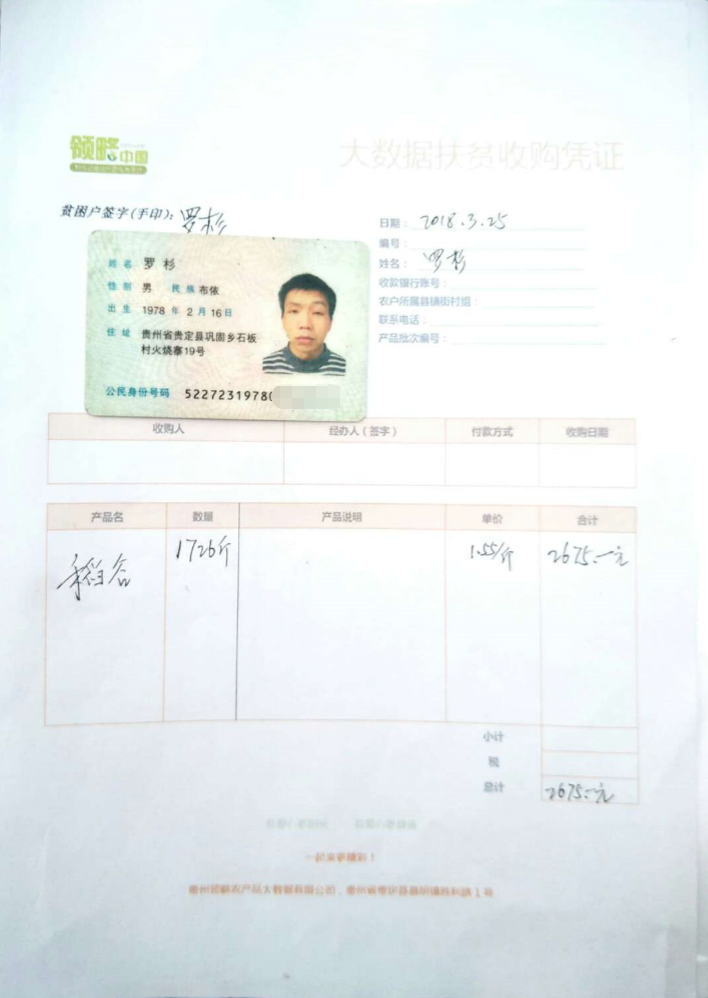 领略中国
大数据扶贫收购凭证
贫困户签字(手印): 罗杉
日期: 2018.3.25
编号:
姓名: 罗杉
收款银行账号:
农户所属县镇街村组:
联系电话:
产品批次编号:
姓名 罗杉
性别 男 民族 布依
出生 1978 年 2 月 16 日
住址 贵州省贵定县巩固乡石板
村火烧寨19号
公民身份号码 5227231978
收购人 经办人(签字) 付款方式 收购日期
产品名 数量 产品说明 单价 合计
稻谷 1726斤 1.55/斤 2675.一元
小计
税
总计 2675.一元